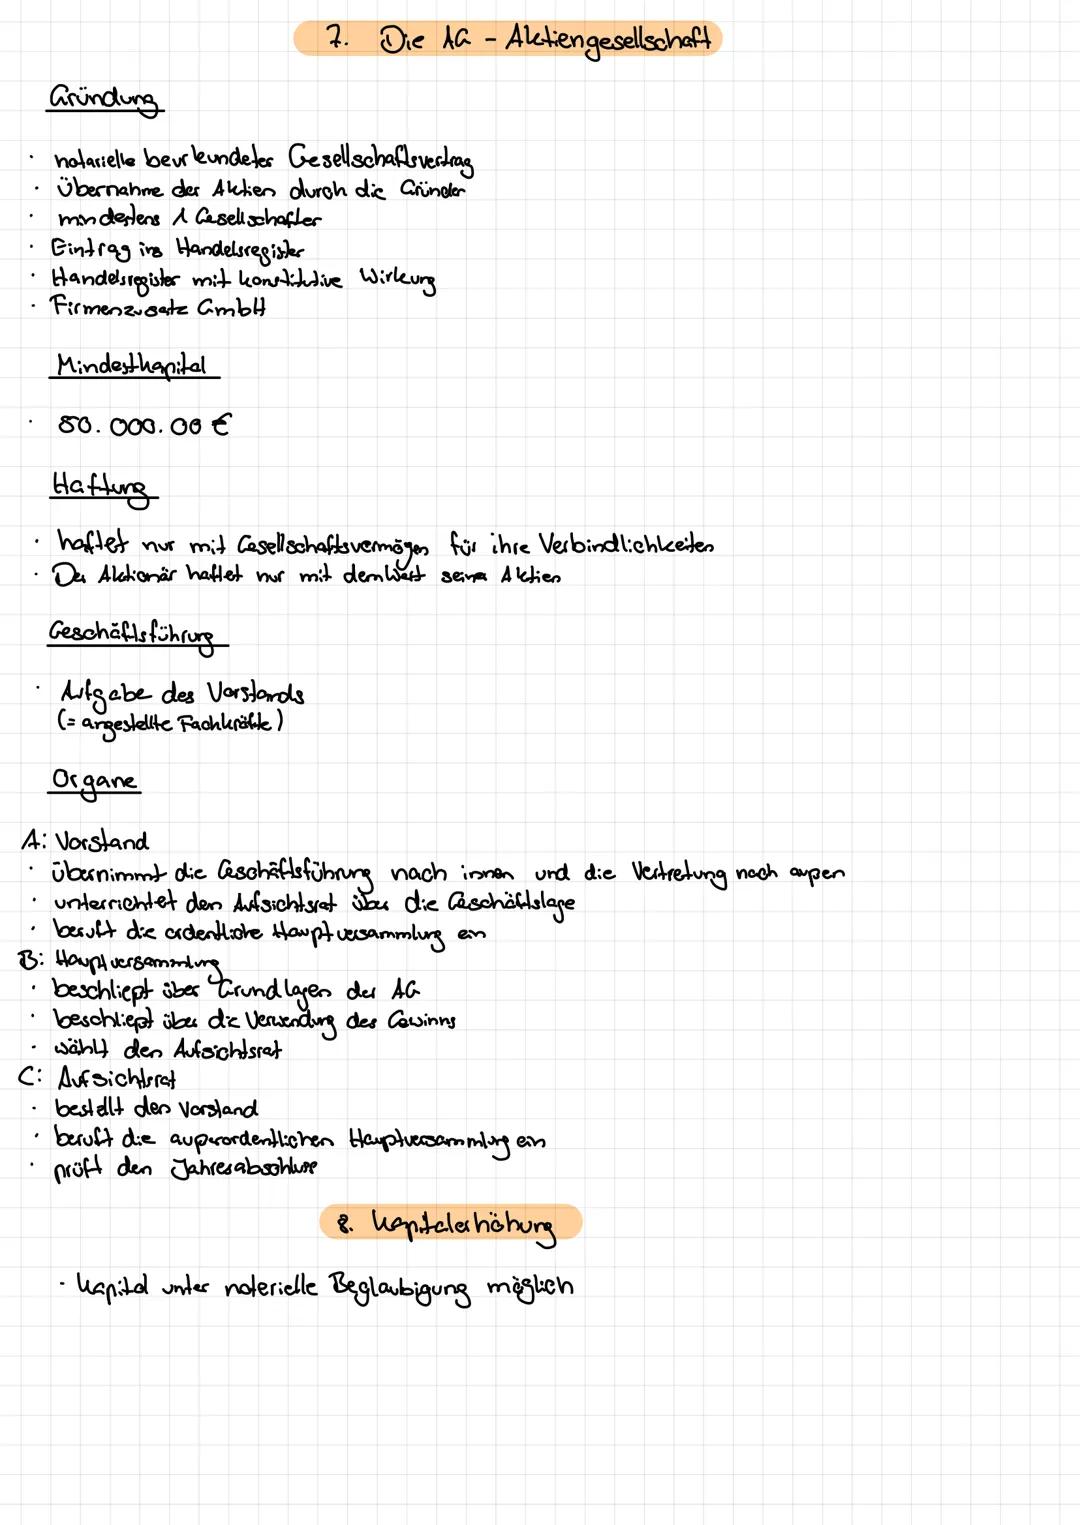 7. Die AG - Aktiengesellschaft
Gründung
· notarielle beurkundeter Gesellschaftsvertrag
· Übernahme der Aktien durch die Gründer
· mindestens 1 Gesellschafter
· Eintrag ins Handelsregister
· Handelsregister mit konstitutive Wirkung
· Firmenzusatz GmbH
Mindestkapital
· 50.000.00 €
Haftung
· haftet nur mit Gesellschaftsvermögen für ihre Verbindlichkeiten
· Der Aktionär haftet nur mit dem Wert seiner Aktien
Geschäftsführung
· Aufgabe des Vorstands
(= angestellte Fachkräfte)
Organe
A: Vorstand
· übernimmt die Geschäftsführung nach innen und die Vertretung nach außen
· unterrichtet den Aufsichtsrat über die Geschäftslage
· beruft die ordentliche Hauptversammlung ein
B: Hauptversammlung
· beschließt über Grundlagen der AG
· beschließt über die Verwendung des Gewinns
· wählt den Aufsichtsrat
C: Aufsichtsrat
· bestellt den Vorstand
· beruft die außerordentlichen Hauptversammlung ein
· prüft den Jahresabschluss
8. Kapitalerhöhung
· Kapital unter noterielle Beglaubigung möglich